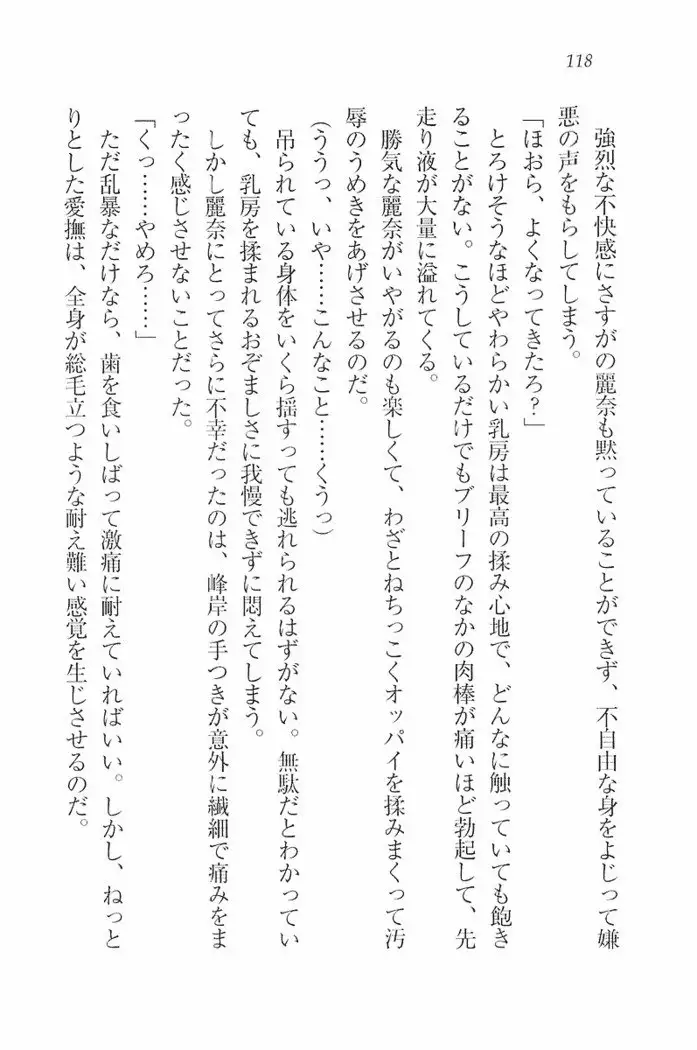 118
強烈な不快感にさすがの麗奈も黙っていることができず、不自由な身をよじって嫌
悪の声をもらしてしまう。
「ほおら、よくなってきたろ？」
とろけそうなほどやわらかい乳房は最高の揉み心地で、どんなに触っていても飽き
ることがない。こうしているだけでもブリーフのなかの肉棒が痛いほど勃起して、先
走り液が大量に溢れてくる。
勝気な麗奈がいやがるのも楽しくて、わざとねちっこくオッパイを揉みまくって汚
辱のうめきをあげさせるのだ。
（ううっ、いや……こんなこと……くうっ）
吊られている身体をいくら揺すっても逃れられるはずがない。無駄だとわかってい
ても、乳房を揉まれるおぞましさに我慢できずに悶えてしまう。
しかし麗奈にとってさらに不幸だったのは、峰岸の手つきが意外に繊細で痛みをま
ったく感じさせないことだった。
「くっ……やめろ……」
ただ乱暴なだけなら、歯を食いしばって激痛に耐えていればいい。しかし、ねっと
りとした愛撫は、全身が総毛立つような耐え難い感覚を生じさせるのだ。